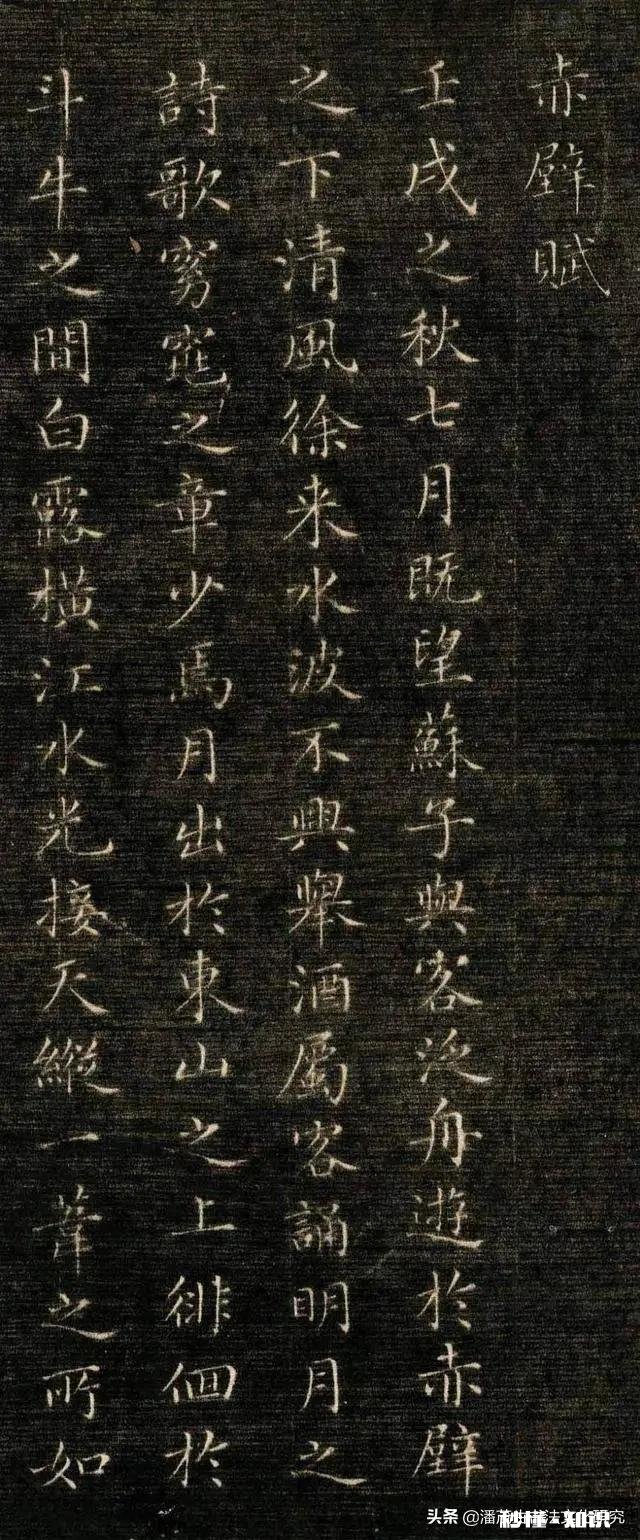 赤壁賦
壬戌之秋七月既望蘇子與客泛舟遊於赤壁
之下清風徐来水波不興舉酒屬客誦明月之
詩歌窈窕之章少焉月出於東山之上徘徊於
斗牛之間白露橫江水光接天縱一葦之所如
秒懂·知识
头条 @潘
文化研究